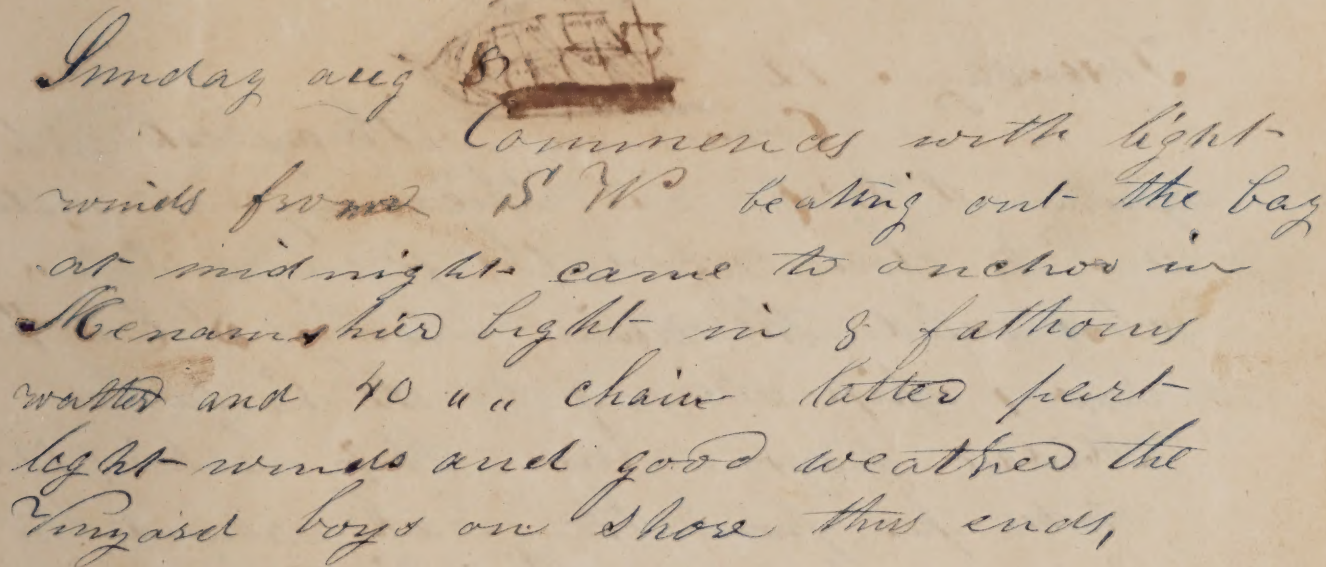 Sunday aug 8
Commences with light
winds from S W beating out the bay
at midnight came to anchor in
Menamshier bight in 8 fathoms
watter and 40 " " chain latter part
light winds and good weather the
Vinyard boys on shore thus ends,